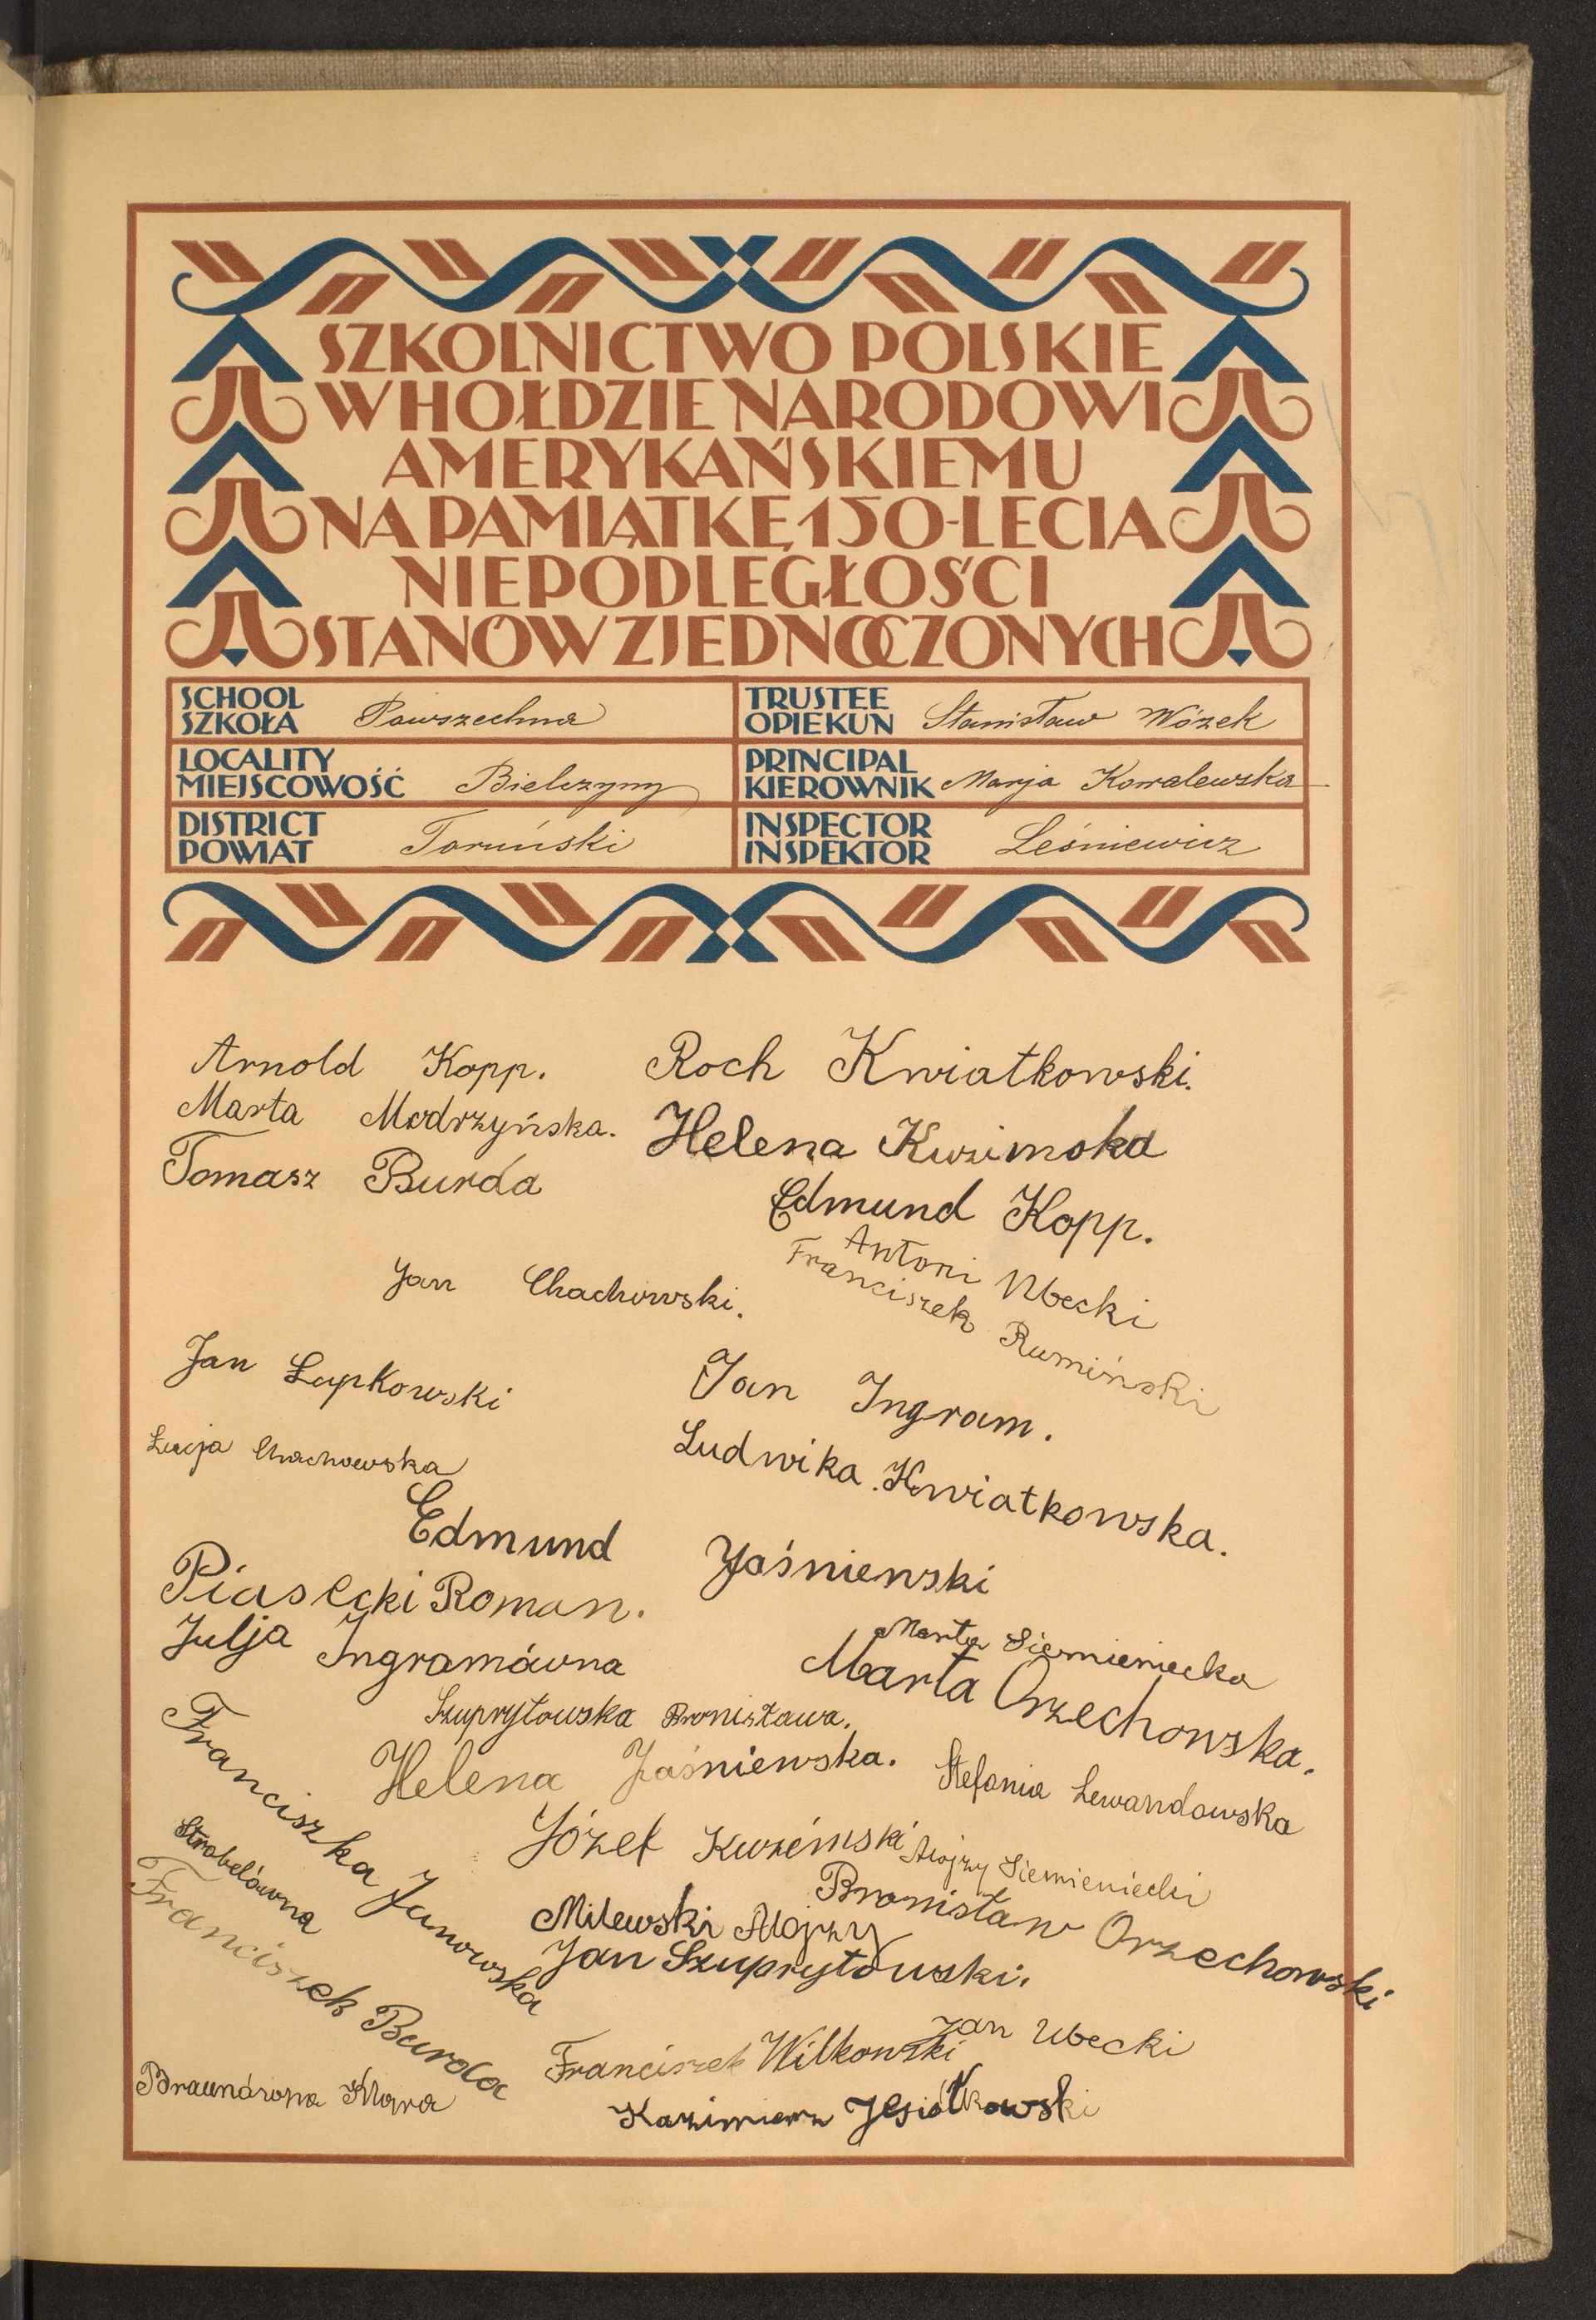 SZKOLNICTWO POLSKIE
W HOŁDZIE NARODOWI
AMERYKAŃSKIEMU
NA PAMIĄTKĘ 150-LECIA
NIEPODLEGŁOŚCI
STANÓW ZJEDNOCZONYCH
SCHOOL
SZKOŁA Powszechna
TRUSTEE
OPIEKUN Stanisław Wózek
LOCALITY
MIEJSCOWOŚĆ Bielczyny
PRINCIPAL
KIEROWNIK Marja Kowalewska
DISTRICT
POWIAT Toruński
INSPECTOR
INSPEKTOR Leśniewicz
Arnold Kopp.
Roch Kwiatkowski.
Marta Modrzyńska.
Helena
Tomasz Burda
Edmund Kopp.
Antoni Ubecki
Franciszek Rumiński
Jan Chachowski.
Jan Łapkowski
Jan Ingram.
Łucja Chachowska
Ludwika Kwiatkowska.
Edmund Jaśniewski
Piasecki Roman.
Julja Ingramówna
Marta Siemieniecka
Marta Orzechowska.
Szuprytowska Bronisława.
Franciszka Janowska
Helena Jaśniewska.
Stefania Lewandowska
Józef
Alojzy Siemieniecki
Strobelówna
Bronisław Orzechowski
Milewski Alojzy
Franciszek Burda
Jan Szuprytowski.
Jan Ubecki
Franciszek Wilkowski
Braunówna Klara
Kazimierz